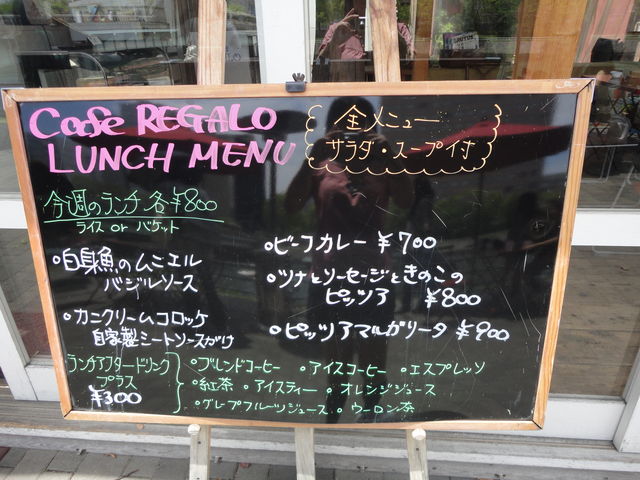 Cafe REGALO
LUNCH MENU
全メニュー
サラダ・スープ付
今週のランチ 各¥800
ライス or バケット
・白身魚のムニエル
バジルソース
・カニクリームコロッケ
自家製ミートソースがけ
・ビーフカレー ¥700
・ツナとソーセージときのこの
ピッツア ¥800
・ピッツアマルガリータ ¥900
ランチアフタードリンク
プラス
¥300
・ブレンドコーヒー ・アイスコーヒー ・エスプレッソ
・紅茶 ・アイスティー ・オレンジジュース
・グレープフルーツジュース ・ウーロン茶